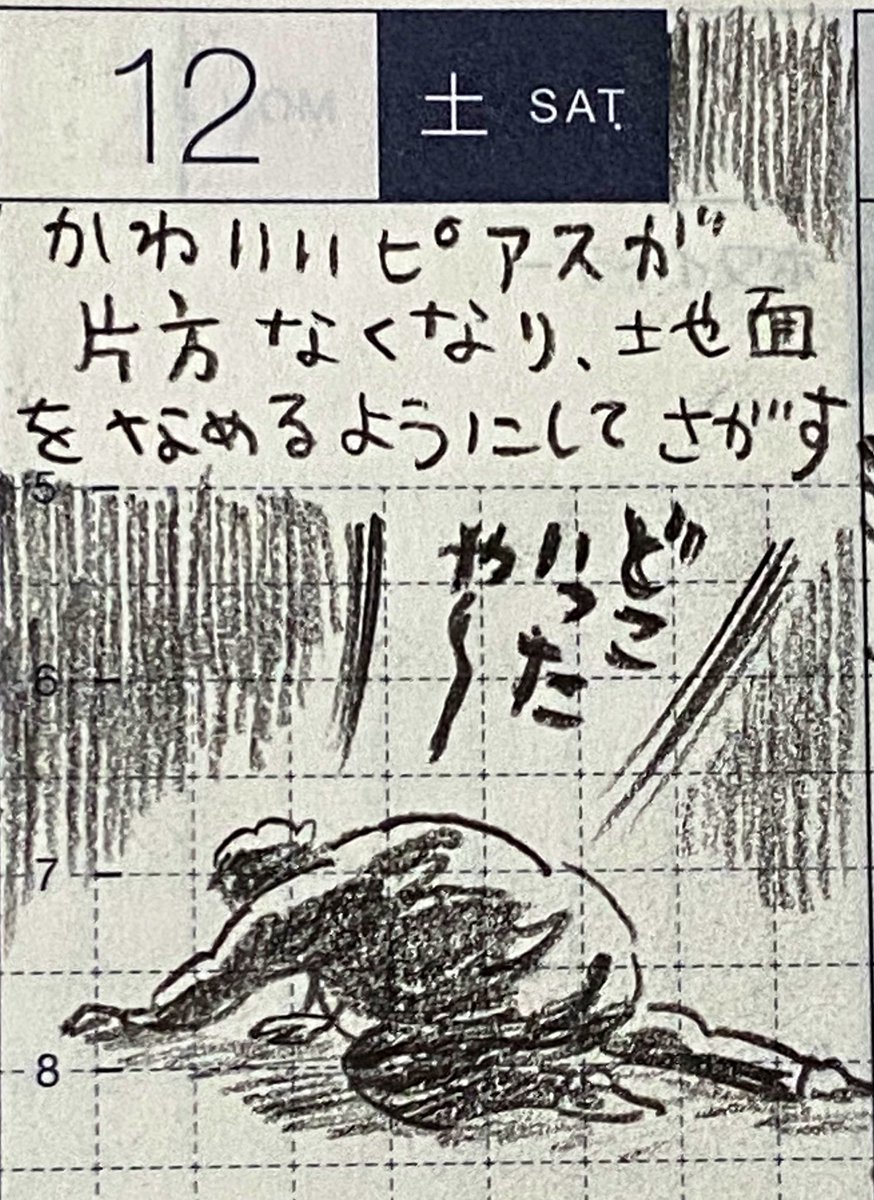 12 土 SAT.
かわいいピアスが
片方なくなり、地面
をなめるようにしてさがす
5
どこ
いった
や〜
6
7
8